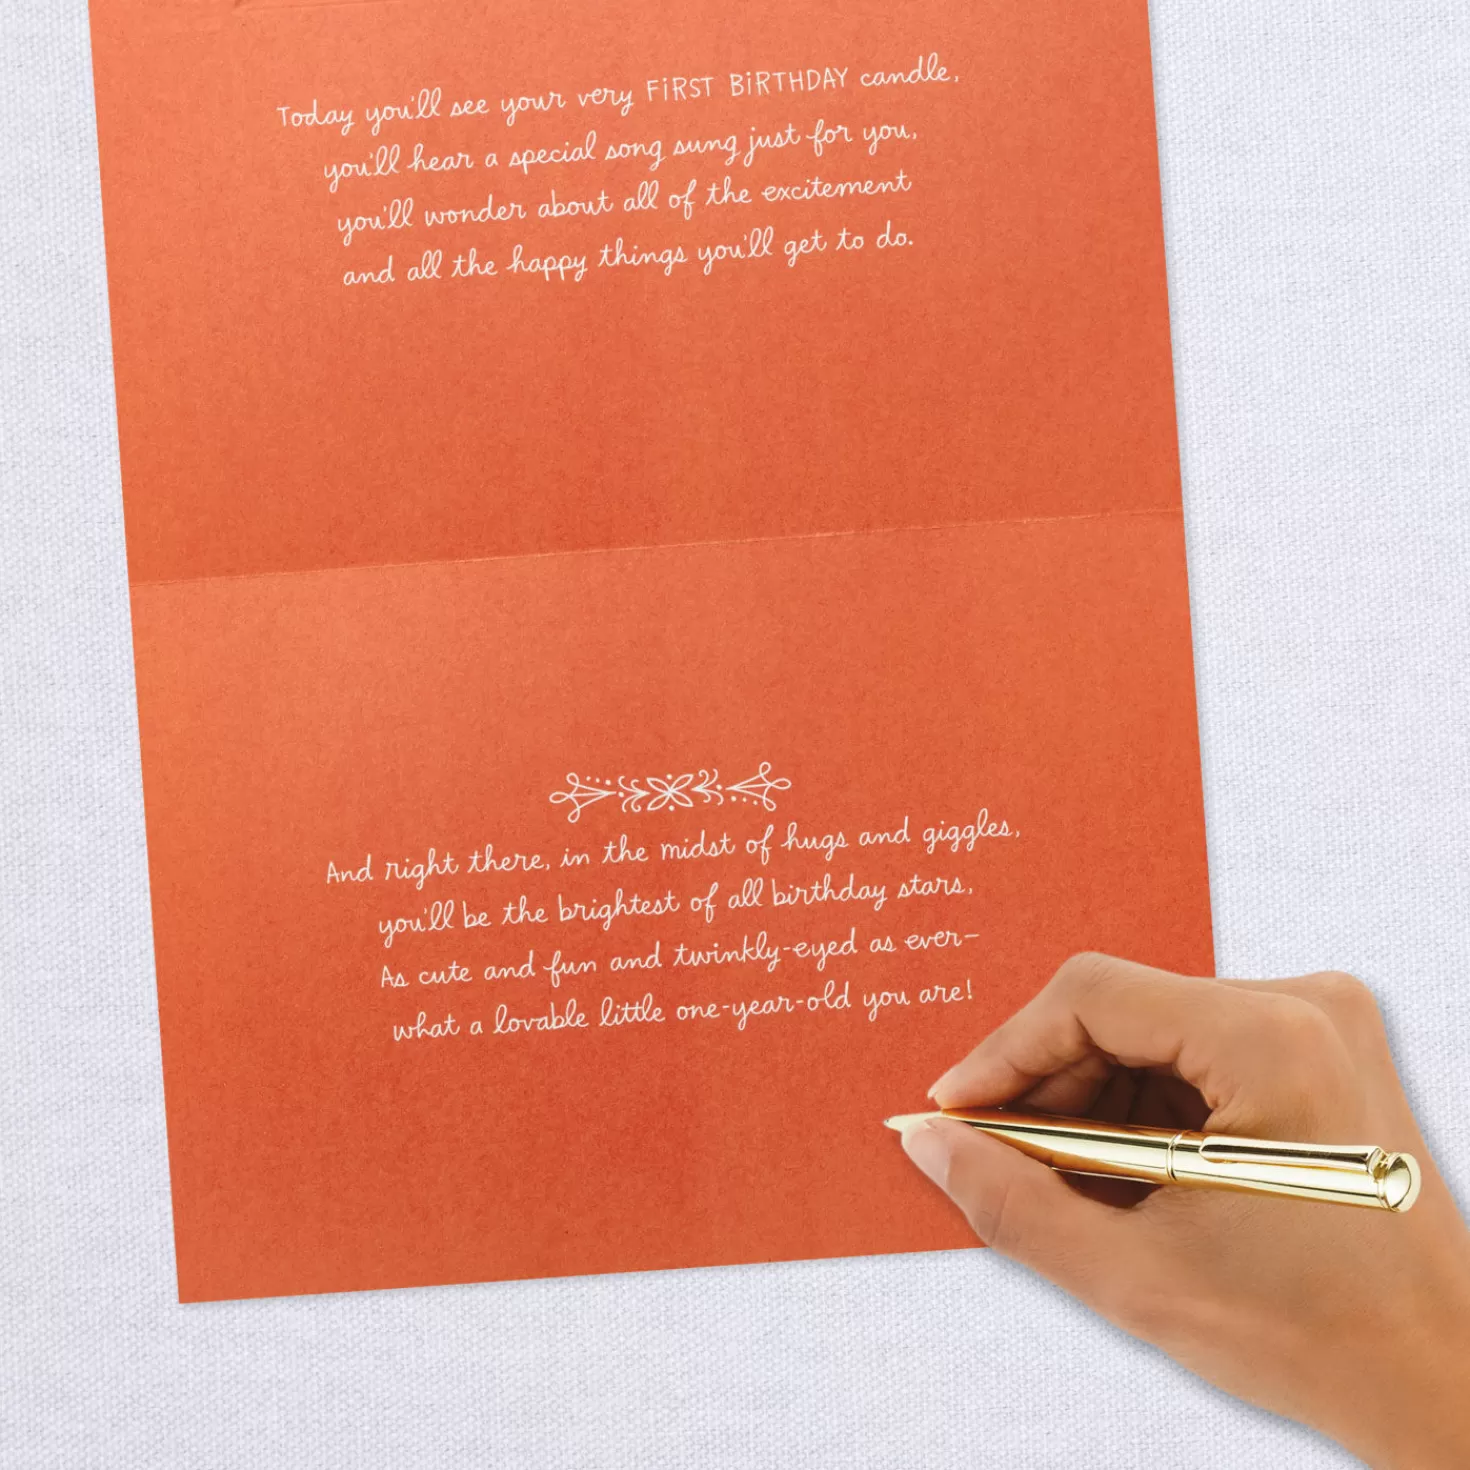 Today you'll see your very FiRST BiRTHDAY candle,
you'll hear a special song sung just for you,
you'll wonder about all of the excitement
and all the happy things you'll get to do.
And right there, in the midst of hugs and giggles,
you'll be the brightest of all birthday stars,
As cute and fun and twinkly-eyed as ever—
what a lovable little one-year-old you are!